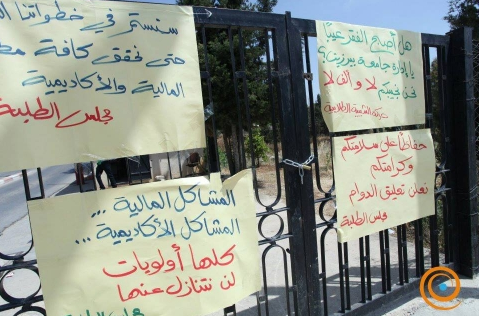 سنستمر في خطواتنا
حتى نحقق كافة
المالية والأكاديمية
مجلس الطلبة
هل أصبح الفقر عيبًا
يا إدارة جامعة بيرزيت؟
نحن نجيبكم لا وألف لا
حفاظًا على سلامتكم
وكرامتكم
نعلن تعليق الدوام
مجلس الطلبة
المشاكل المالية ...
المشاكل الأكاديمية ...
كلها أولويات
لن نتنازل عنها